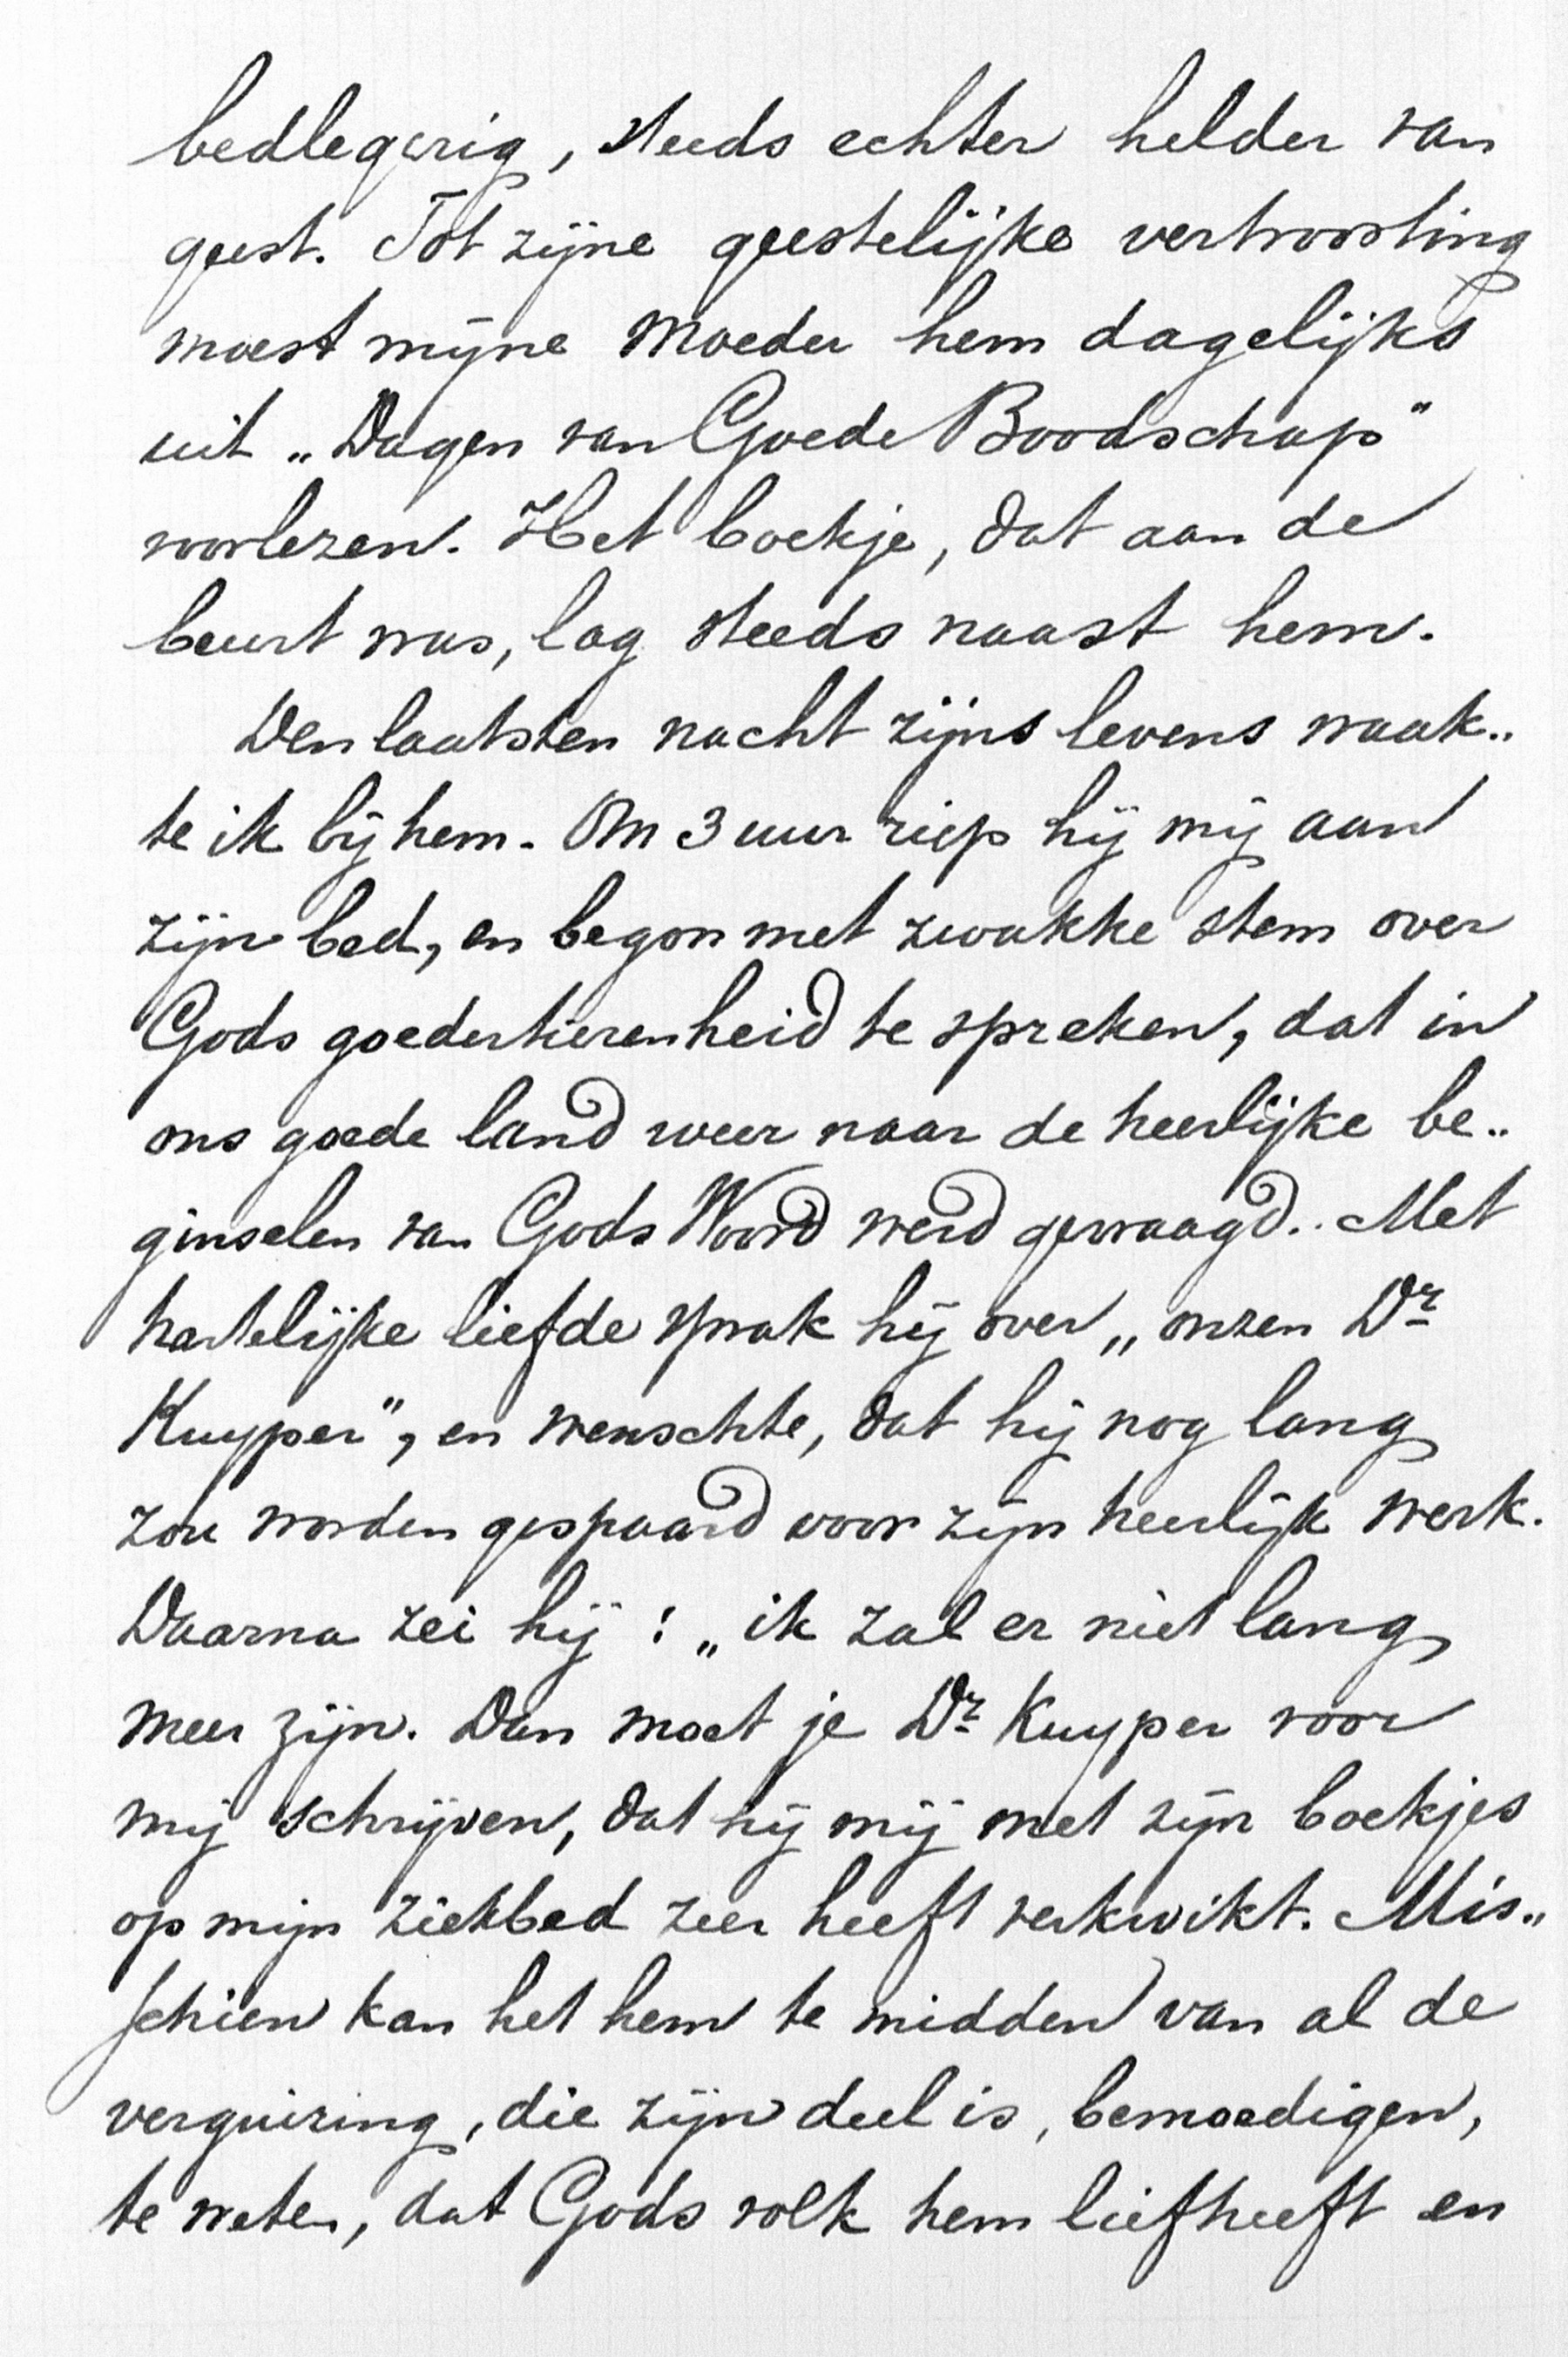 bedlegerig, steeds echter helder van
geest. Tot zijne geestelijke vertroosting
moest mijne Moeder hem dagelijks
uit „Dagen van Goede Boodschap"
voorlezen. Het boekje, dat aan de
beurt was, lag steeds naast hem.
Den laatsten nacht zijns levens waak„
te ik bij hem. Om 3 uur riep hij mij aan
zijn bed, en begon met zwakke stem over
Gods goedertierenheid te spreken, dat in
ons goede land weer naar de heerlijke be„
ginselen van Gods Woord werd gevraagd. Met
hartelijke liefde sprak hij over „onzen Dr
Kuyper", en wenschte, dat hij nog lang
zou worden gespaard voor zijn heerlijk werk.
Daarna zei hij: „ik zal er niet lang
meer zijn. Dan moet je Dr Kuyper voor
mij schrijven, dat hij mij met zijn boekjes
op mijn ziekbed zeer heeft verkwikt. Mis„
schien kan het hem te midden van al de
verguizing, die zijn deel is, bemoedigen,
te weten, dat Gods volk hem liefheeft en